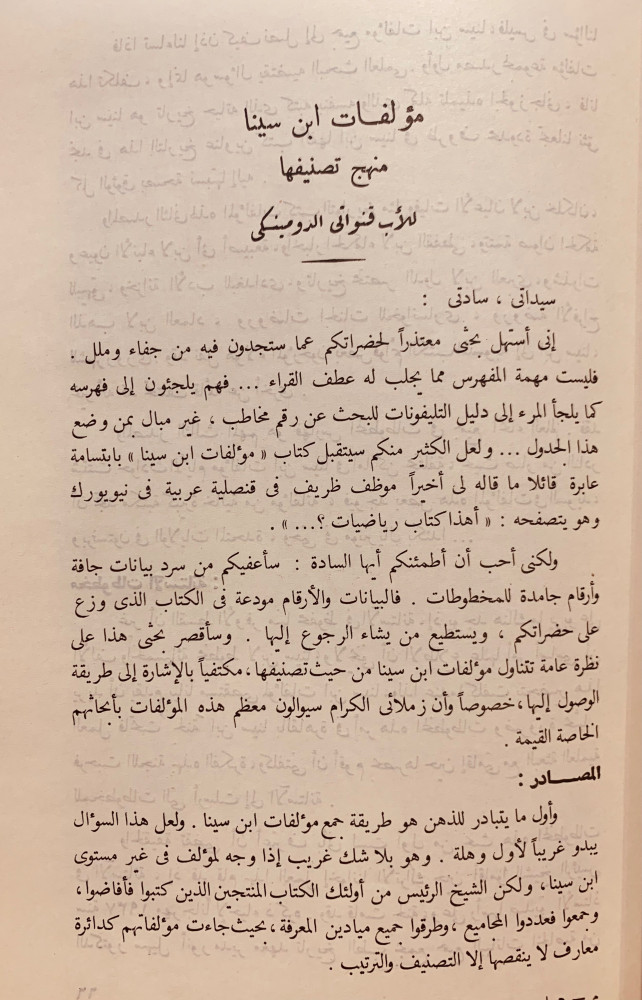 مؤلفات ابن سينا
منهج تصنيفها
للأب قنواتى الدومينكى
سيداتى ، سادتى :
إنى أستهل بحثى معتذراً لحضراتكم عما ستجدون فيه من جفاء وملل .
فليست مهمة المفهرس مما يجلب له عطف القراء ... فهم يلجئون إلى فهرسه
كما يلجأ المرء إلى دليل التليفونات للبحث عن رقم مخاطب ، غير مبال بمن وضع
هذا الجدول ... ولعل الكثير منكم سيتقبل كتاب « مؤلفات ابن سينا » بابتسامة
عابرة قائلا ما قاله لى أخيراً موظف ظريف فى قنصلية عربية فى نيويورك
وهو يتصفحه : « أهذا كتاب رياضيات ؟... » .
ولكنى أحب أن أطمئنكم أيها السادة : سأعفيكم من سرد بيانات جافة
وأرقام جامدة للمخطوطات . فالبيانات والأرقام مودعة فى الكتاب الذى وزع
على حضراتكم ، ويستطيع من يشاء الرجوع إليها . وسأقصر بحثى هذا على
نظرة عامة تتناول مؤلفات ابن سينا من حيث تصنيفها ، مكتفياً بالإشارة إلى طريقة
الوصول إليها ، خصوصاً وأن زملائى الكرام سيوالون معظم هذه المؤلفات بأبحاثهم
الخاصة القيمة .
المصادر :
وأول ما يتبادر للذهن هو طريقة جمع مؤلفات ابن سينا . ولعل هذا السؤال
يبدو غريباً لأول وهلة . وهو بلا شك غريب إذا وجه لمؤلف فى غير مستوى
ابن سينا ، ولكن الشيخ الرئيس من أولئك الكتاب المنتجين الذين كتبوا فأفاضوا ،
وجمعوا فعددوا المجاميع ، وطرقوا جميع ميادين المعرفة ، بحيث جاءت مؤلفاتهم كدائرة
معارف لا ينقصها إلا التصنيف والترتيب .